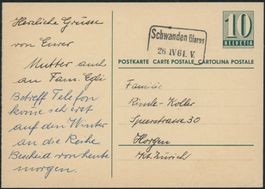 Herzliche Grüsse
von Eurer
Mutter auch
an Fam. Egli
Betreff Telefon
komme ich erst
auf den Winter
an die Reihe
Bescheid von heute
morgen.
Schwanden Glarus
28 IV 61. V.
10
HELVETIA
POSTKARTE CARTE POSTALE CARTOLINA POSTALE
Familie
-Koller
Speerstrasse 30
Horgen
Kt. Zürich